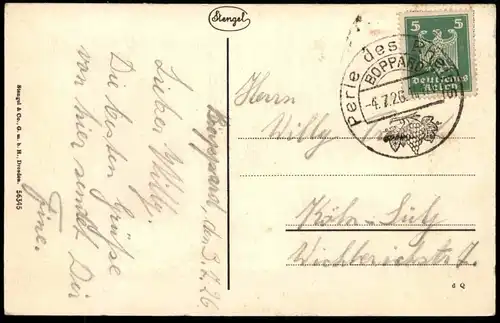 Stengel
Stengel & Co., G. m. b. H., Dresden. 56345
Boppard, den 3.7.26
Lieber Willy.
Die besten Grüße
von hier sendet Dir
Fine.
Perle des Rheins
BOPPARD
-4.7.26.
5 5
Deutsches
Reich
Herrn
Willy
Köln-Sülz
d Q